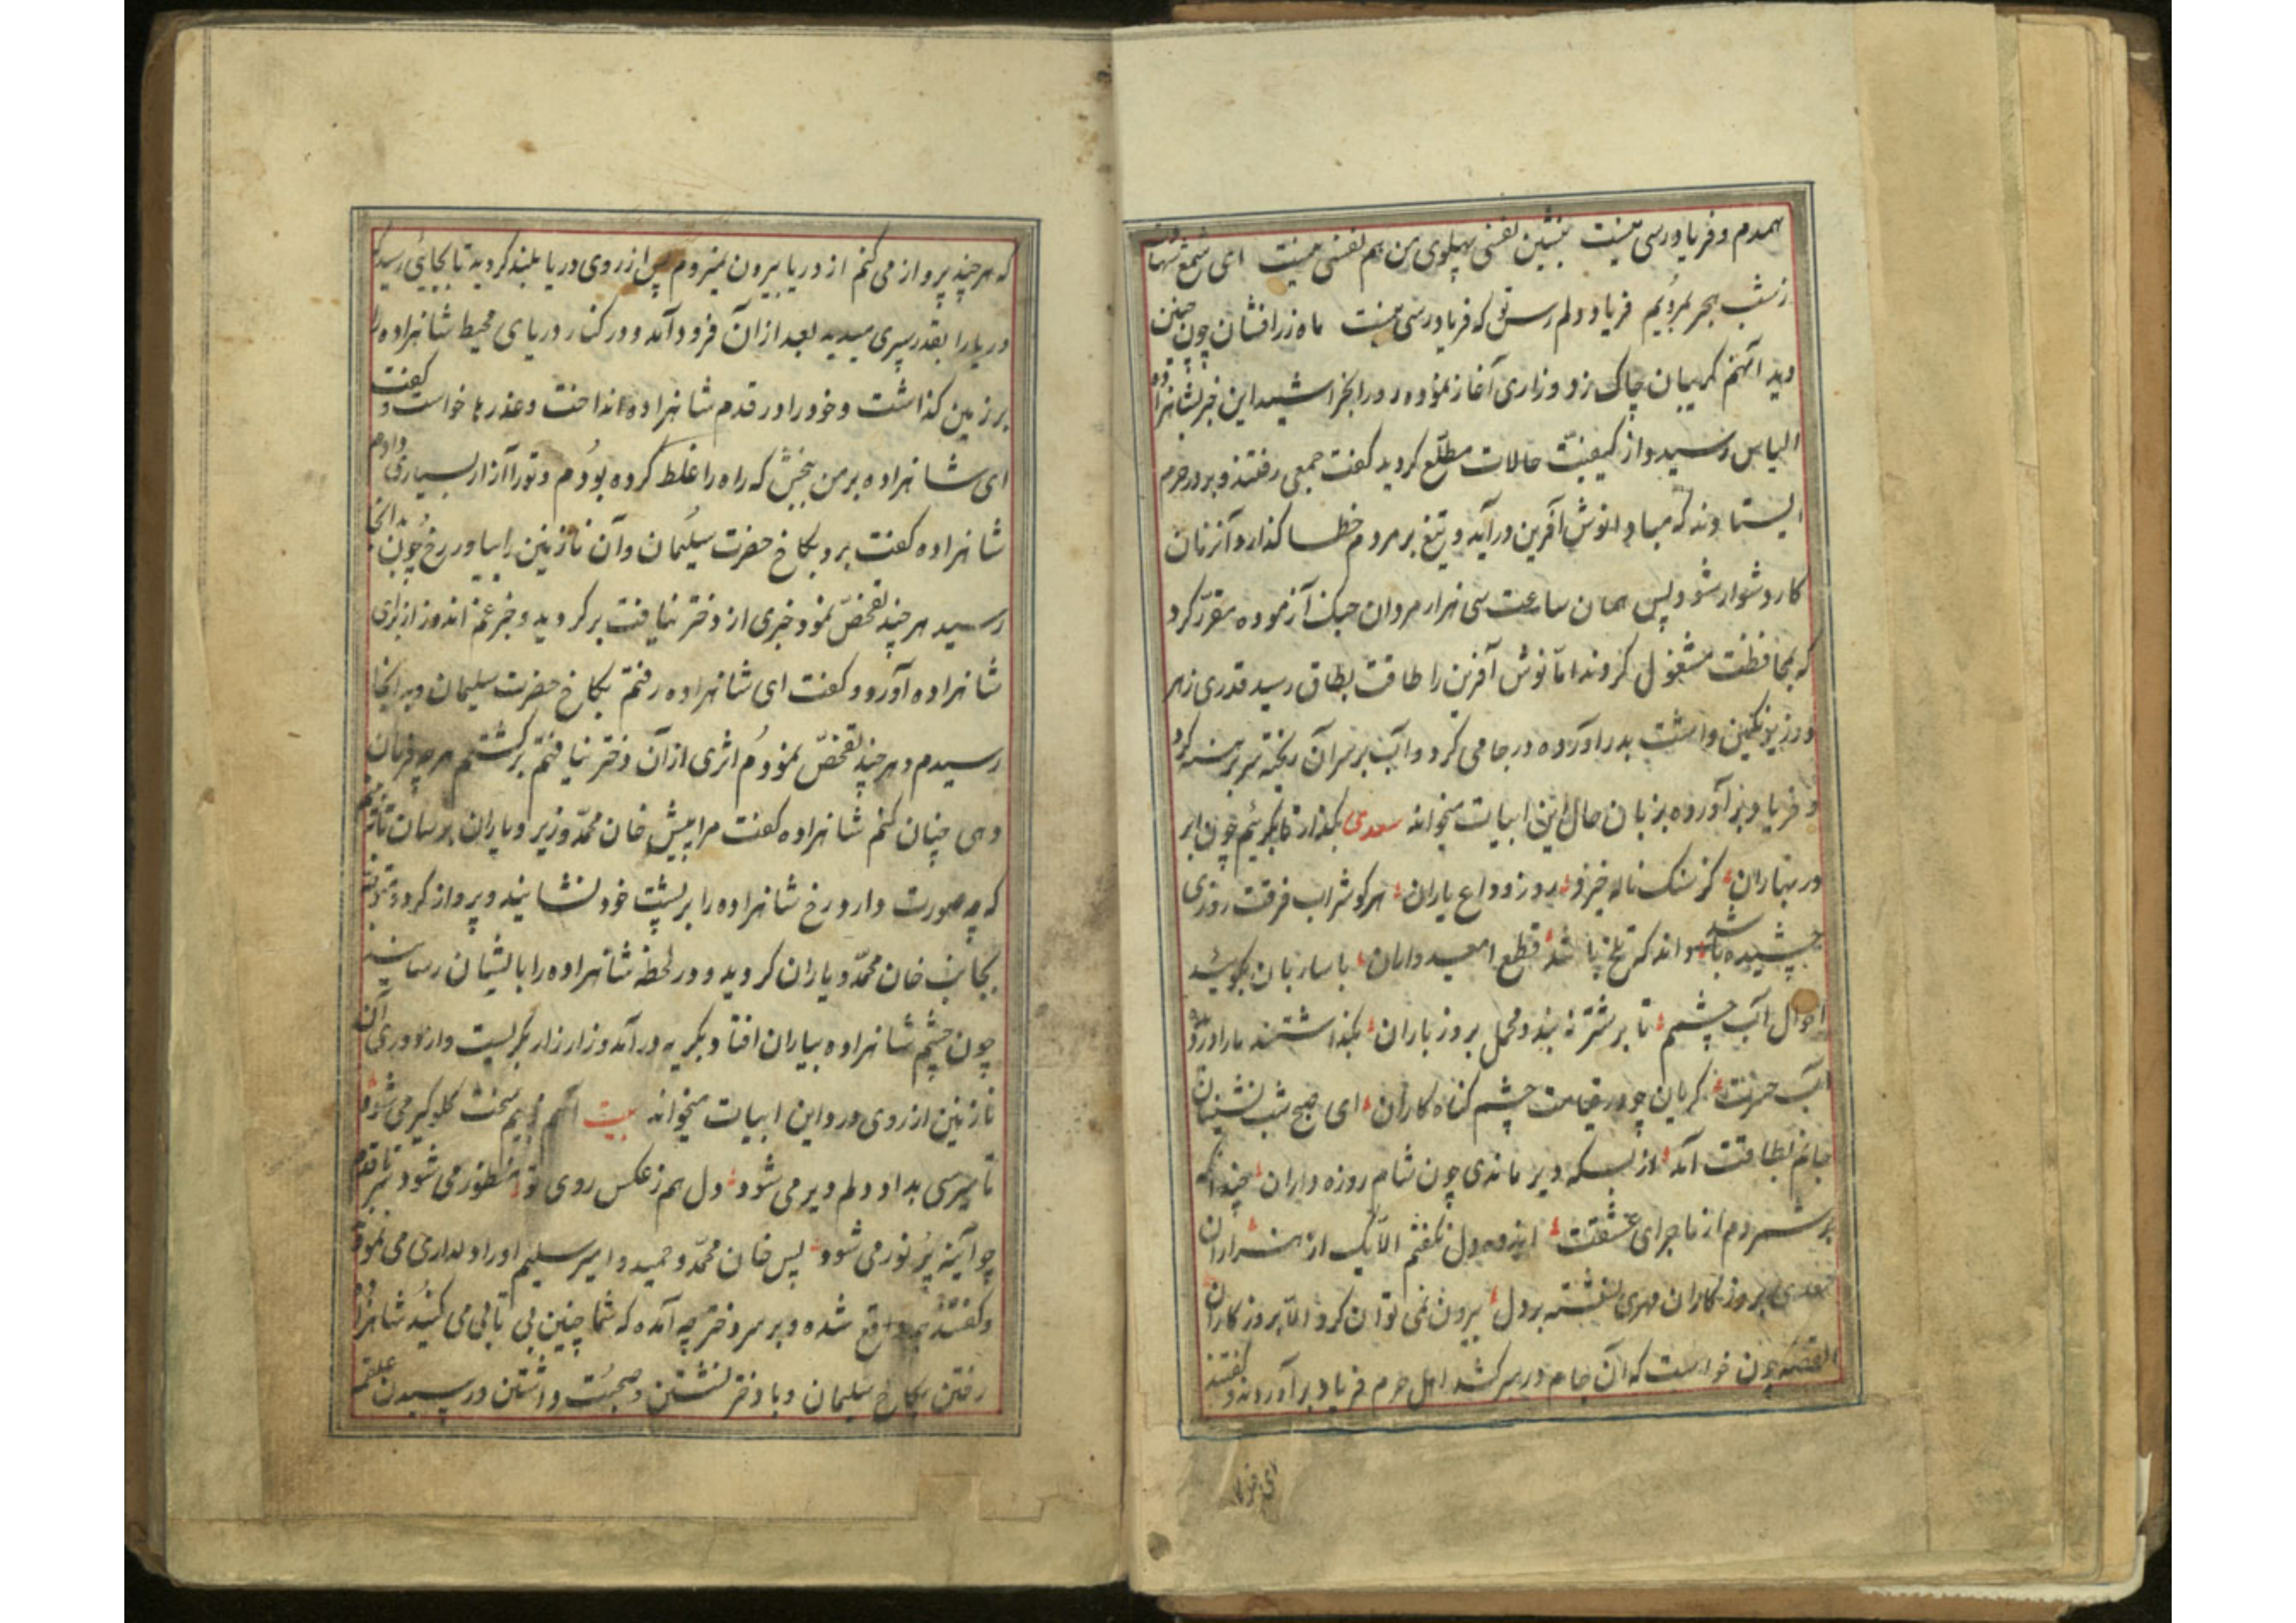 همدم و فریادرسی نیست بنشین نفسی پهلوی من هم نفسی نیست ای شمع
ز شب هجر بمردیم فریاد دلم رس تو که فریادرسی نیست ماه زرافشان چون چنین
دید آنهم گریبان چاک زد و زاری آغاز نمود و رو را بخراشید این خبر بشاهزاده
الیاس رسید و از کیفیت حالات مطلع گردید گفت جمعی رفتند و بر در حرم
ایستادند که مبادا نوش آفرین درآید و تیغ بر مردم خطا گذارد آنزمان
کار دشوار شود پس همان ساعت سی هزار مردان جنک آزموده مقرر کرد
که بمحافظت مشغول کردند اما نوش آفرین را طاقت بطاق رسید قدری زهر
در زیر نکین داشت بدر آورده در جامی کرد و آب بر سر آن ریخته سر برهنه کرد
و فریاد برآورده بزبان حال این ابیات میخواند سعدی بگذار تا بگریم چون ابر
در بهاران کز سنک ناله خیزد روز وداع یاران هر کو شراب فرقت روزی
چشیده باشد داند که تلخ باشد قطع امیدواران با ساربان بگوئید
احوال آب چشمم تا بر شتر نه بندد محمل بروز باران بگذاشتند ما را در دیده
آب حسرت گریان چو در قیامت چشم گناه کاران ای صبح شب نشینان
جانم بطاقت آمد از بسکه دیر ماندی چون شام روزه داران چندانکه
بر شمردم از ماجرای عشقت اندوه دل نگفتم الا یک از هزاران
سعدی بروزکاران مهری نشسته بر دل بیرون نمی توان کرد الا بروزکاران
القصه چون خواست که آن جام در سر کشد اهل حرم فریاد برآوردند و گفتند
ای
که هر چند پرواز می کنم از دریا بیرون نمیروم پس از روی دریا بلند گردید تا بجائی رسید که
دریا را بقدر سپری میدید بعد از آن فرود آمد و در کنار دریای محیط شاهزاده را
بر زمین گذاشت و خود را در قدم شاهزاده انداخت و عذرها خواست و گفت
ای شاهزاده بر من ببخش که راه را غلط کرده بودم و تو را آزار بسیار دادم
شاهزاده گفت برو بکاخ حضرت سلیمان و آن نازنین را بیاور رخ چون بدانجا
رسید هر چند تفحص نمود خبری از دختر نیافت برگردید و خبر غم اندوز از برای
شاهزاده آورد و گفت ای شاهزاده رفتم بکاخ حضرت سلیمان و بدانجا
رسیدم و هر چند تفحص نمودم اثری از آن دختر نیافتم برگشتم هر چه فرمان
دهی چنان کنم شاهزاده گفت مرا پیش خان محمد وزیر و یاران برسان تا
که چه صورت دارد رخ شاهزاده را بر پشت خود نشانید و پرواز کرد
بجانب خان محمد و یاران گردید و در لحظه شاهزاده را بایشان رسانید
چون چشم شاهزاده بیاران افتاد بگریه درآمد و زار زار بگریست و از دوری آن
نازنین از روی درد این ابیات میخواند بیت سخت گلوگیر می شود
تا میرسی بداد دلم دیر می شود دل هم ز عکس روی تو منظور می شود سر تا قدم
چو آینه پر نور می شود پس خان محمد و حمید و امیر سلیم او را دلداری می نمود
و گفتند چه واقع شده و بر سر دختر چه آمده که شما چنین بی تابی می کنید شاهزاده
رفتن بکاخ سلیمان و با دختر نشستن و صحبت داشتن و رسیدن